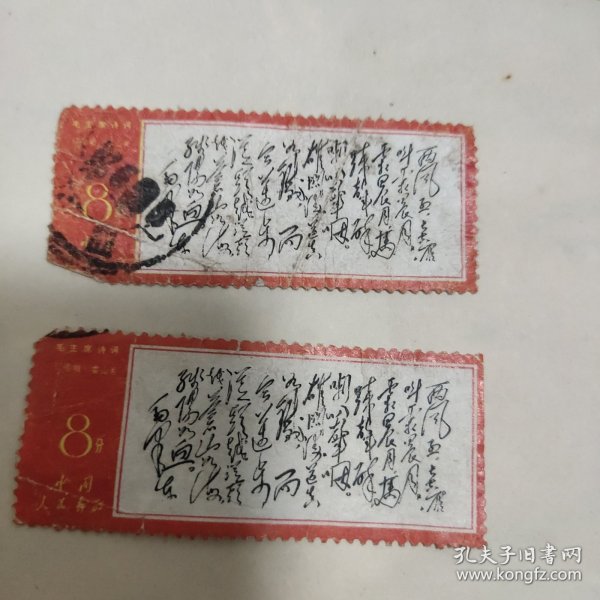 毛主席诗词
8
西风烈长空雁
叫霜晨月。
霜晨月马
蹄声碎
喇叭声咽。
雄关漫道真
如铁 而
今迈步
从头越从头
越苍山如海
残阳如血。
毛泽东
毛主席诗词
忆秦娥·娄山关
8分
中国
人民邮政
西风烈长空雁
叫霜晨月。
霜晨月马
蹄声碎
喇叭声咽。
雄关漫道真
如铁 而
今迈步
从头越从头
越苍山如海
残阳如血。
毛泽东
孔夫子旧书网
www.kongfz.com